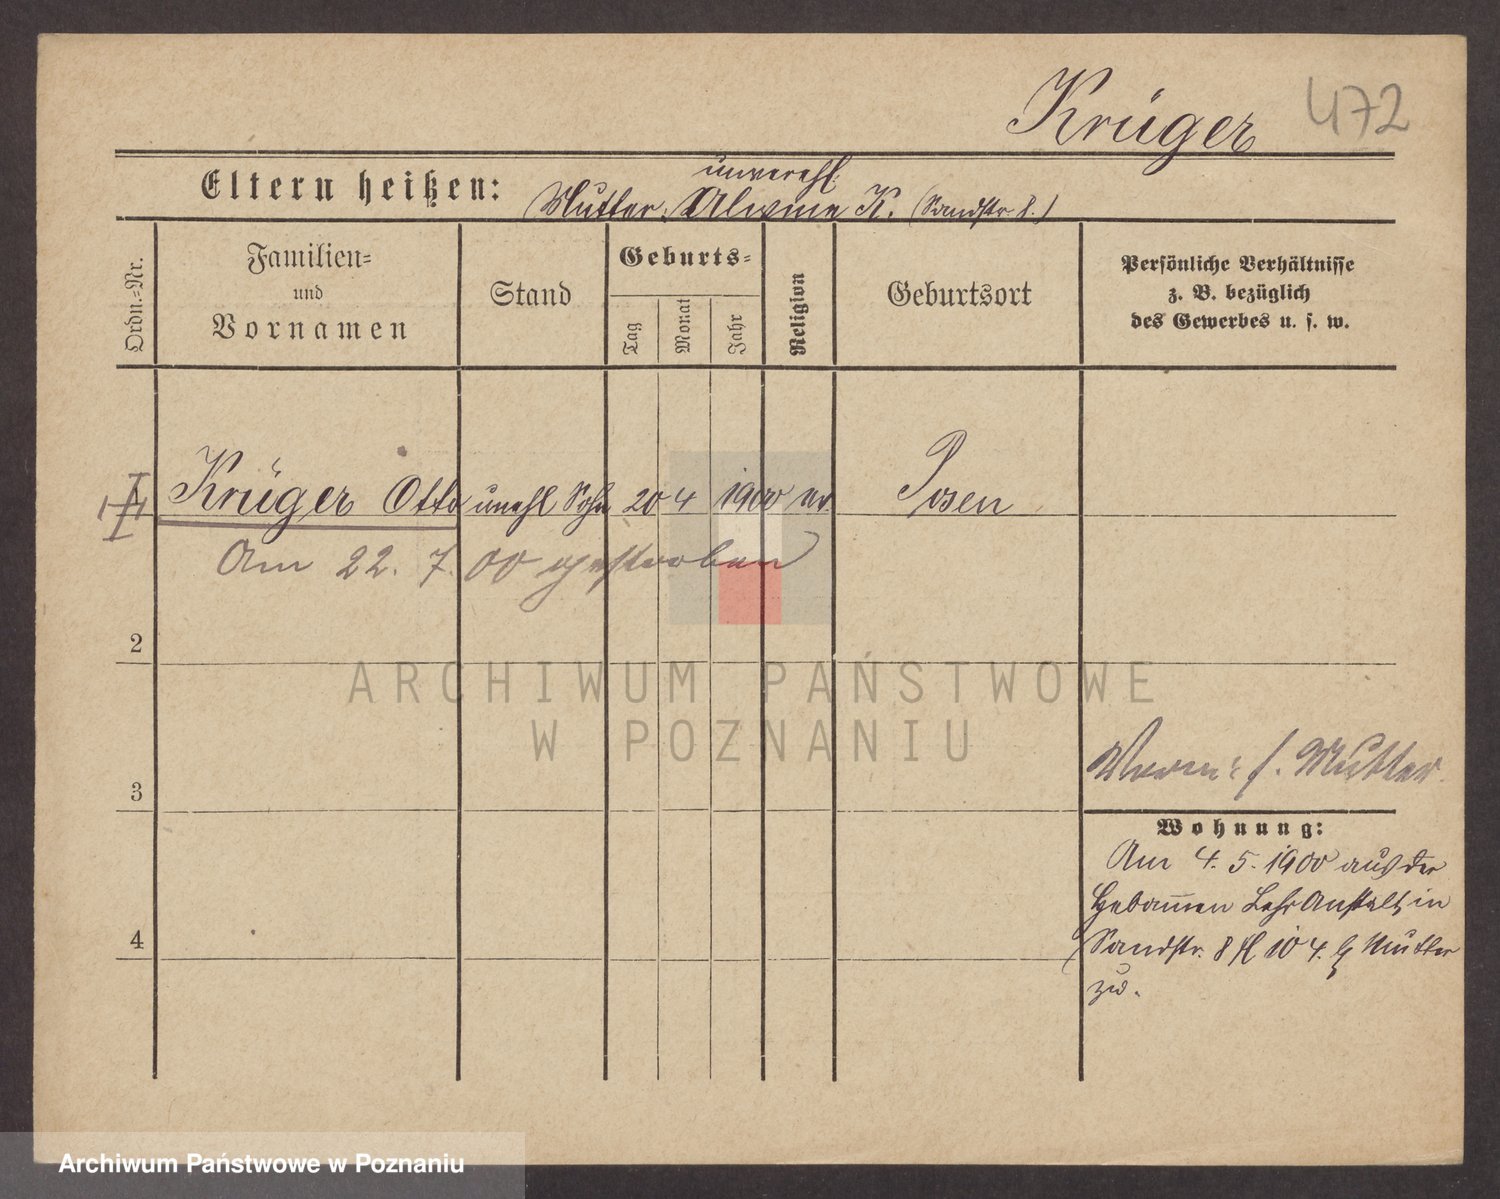 Krüger 472
Eltern heißen: Mutter: unverehl. Alwine K. (Sandstr 8.)
Ordn.-Nr.
Familien-
und
Vornamen
Stand
Geburts-
Tag
Monat
Jahr
Religion
Geburtsort
Persönliche Verhältnisse
z. B. bezüglich
des Gewerbes u. s. w.
Krüger Otto unehl Sohn 20 4 1900 ev. Posen
Am 22. 7. 00 gestorben
2
ARCHIWUM PAŃSTWOWE
W POZNANIU
3
4
Verm: s. Mutter
Wohnung:
Am 4. 5. 1900 aus der
Hebammen Lehr Anstalt, in
Sandstr. 8 10 4. Mutter
zu.
Archiwum Państwowe w Poznaniu